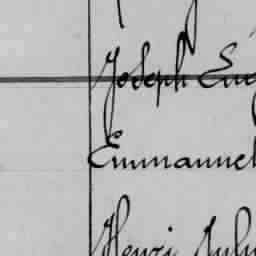 Joseph Eug
Emmanuel
Henri Jul